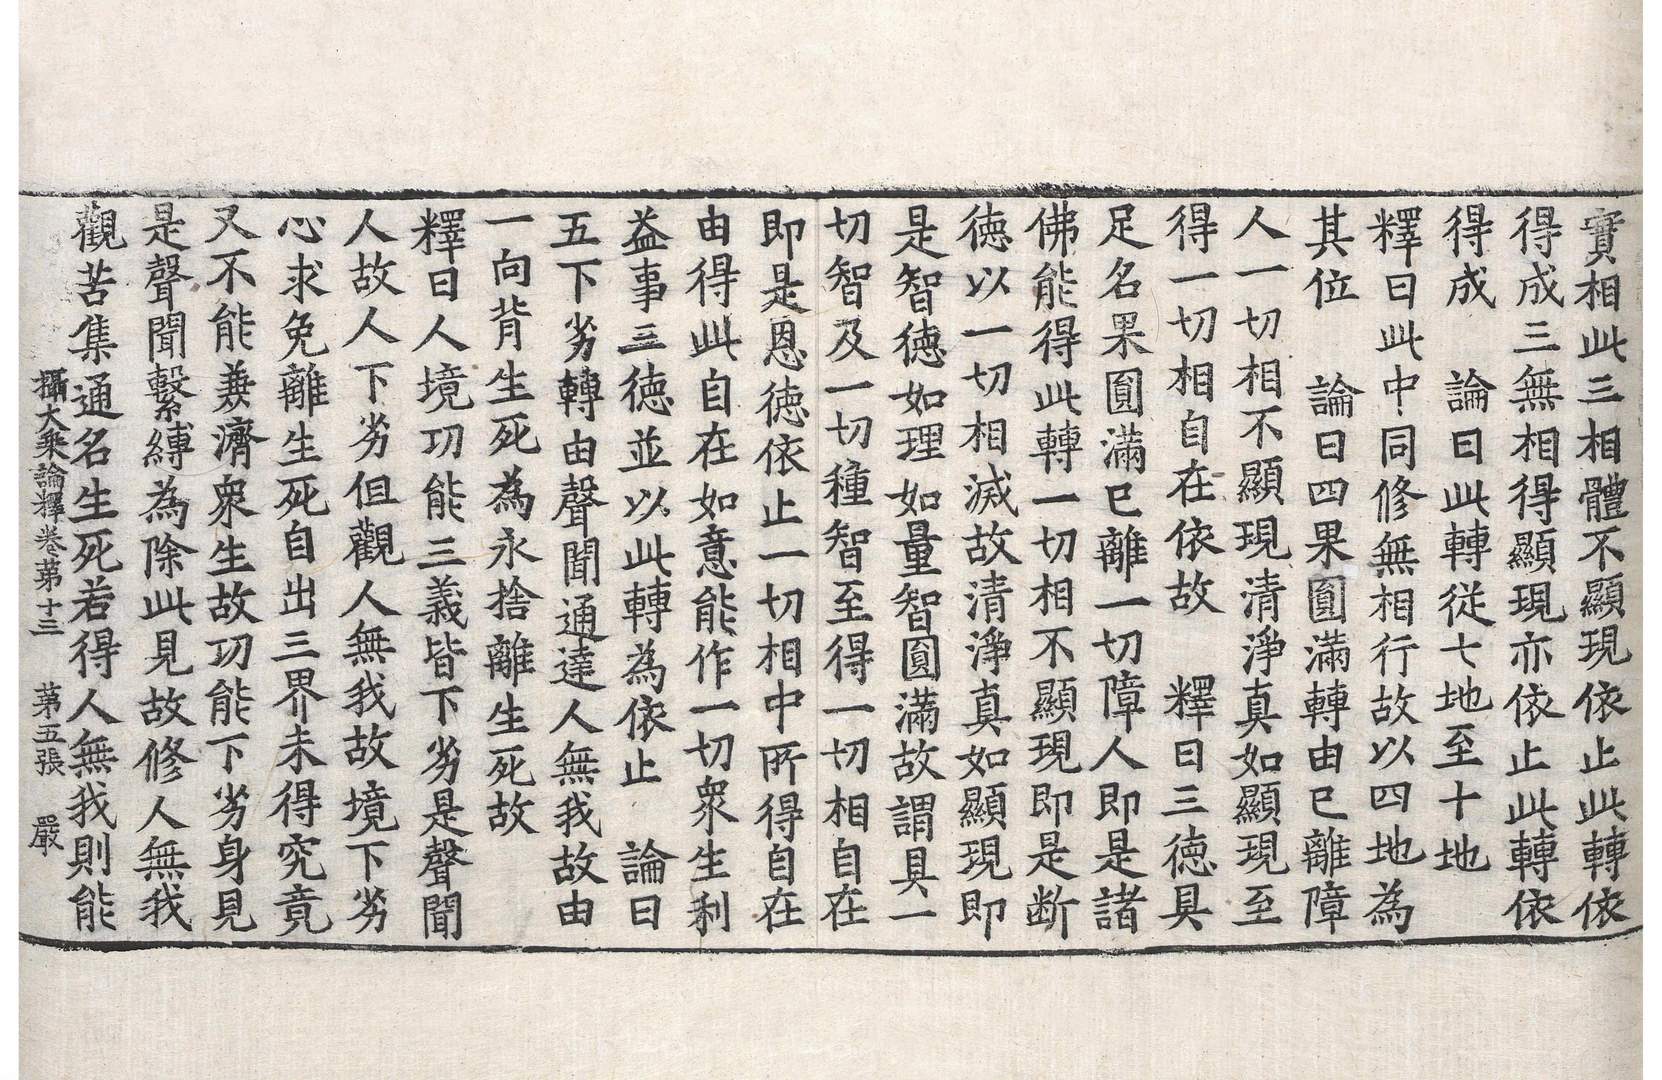 實相此三相體不顯現依止此轉依
得成三無相得顯現亦依止此轉依
得成　論曰此轉從七地至十地
釋曰此中同修無相行故以四地為
其位　論曰四果圓滿轉由已離障
人一切相不顯現清淨真如顯現至
得一切相自在依故　釋曰三德具
足名果圓滿已離一切障人即是諸
佛能得此轉一切相不顯現即是断
德以一切相滅故清淨真如顯現即
是智德如理如量智圓滿故謂具一
切智及一切種智至得一切相自在
即是恩德依止一切相中所得自在
由得此自在如意能作一切衆生利
益事三德並以此轉為依止　論曰
五下劣轉由聲聞通達人無我故由
一向背生死為永捨離生死故
釋曰人境功能三義皆下劣是聲聞
人故人下劣但觀人無我故境下劣
心求免離生死自出三界未得究竟
又不能兼濟衆生故功能下劣身見
是聲聞繫縛為除此見故修人無我
觀苦集通名生死若得人無我則能
攝大乘論釋卷第十三　第五張　嚴